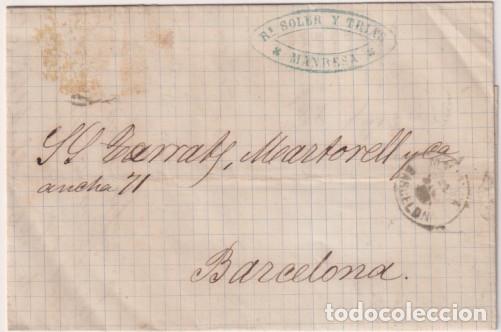 Rl SOLER Y
* MANRESA *
SS Garrats, Martorell y ca
ancha 71
BARCELON
Barcelona.
todocoleccion